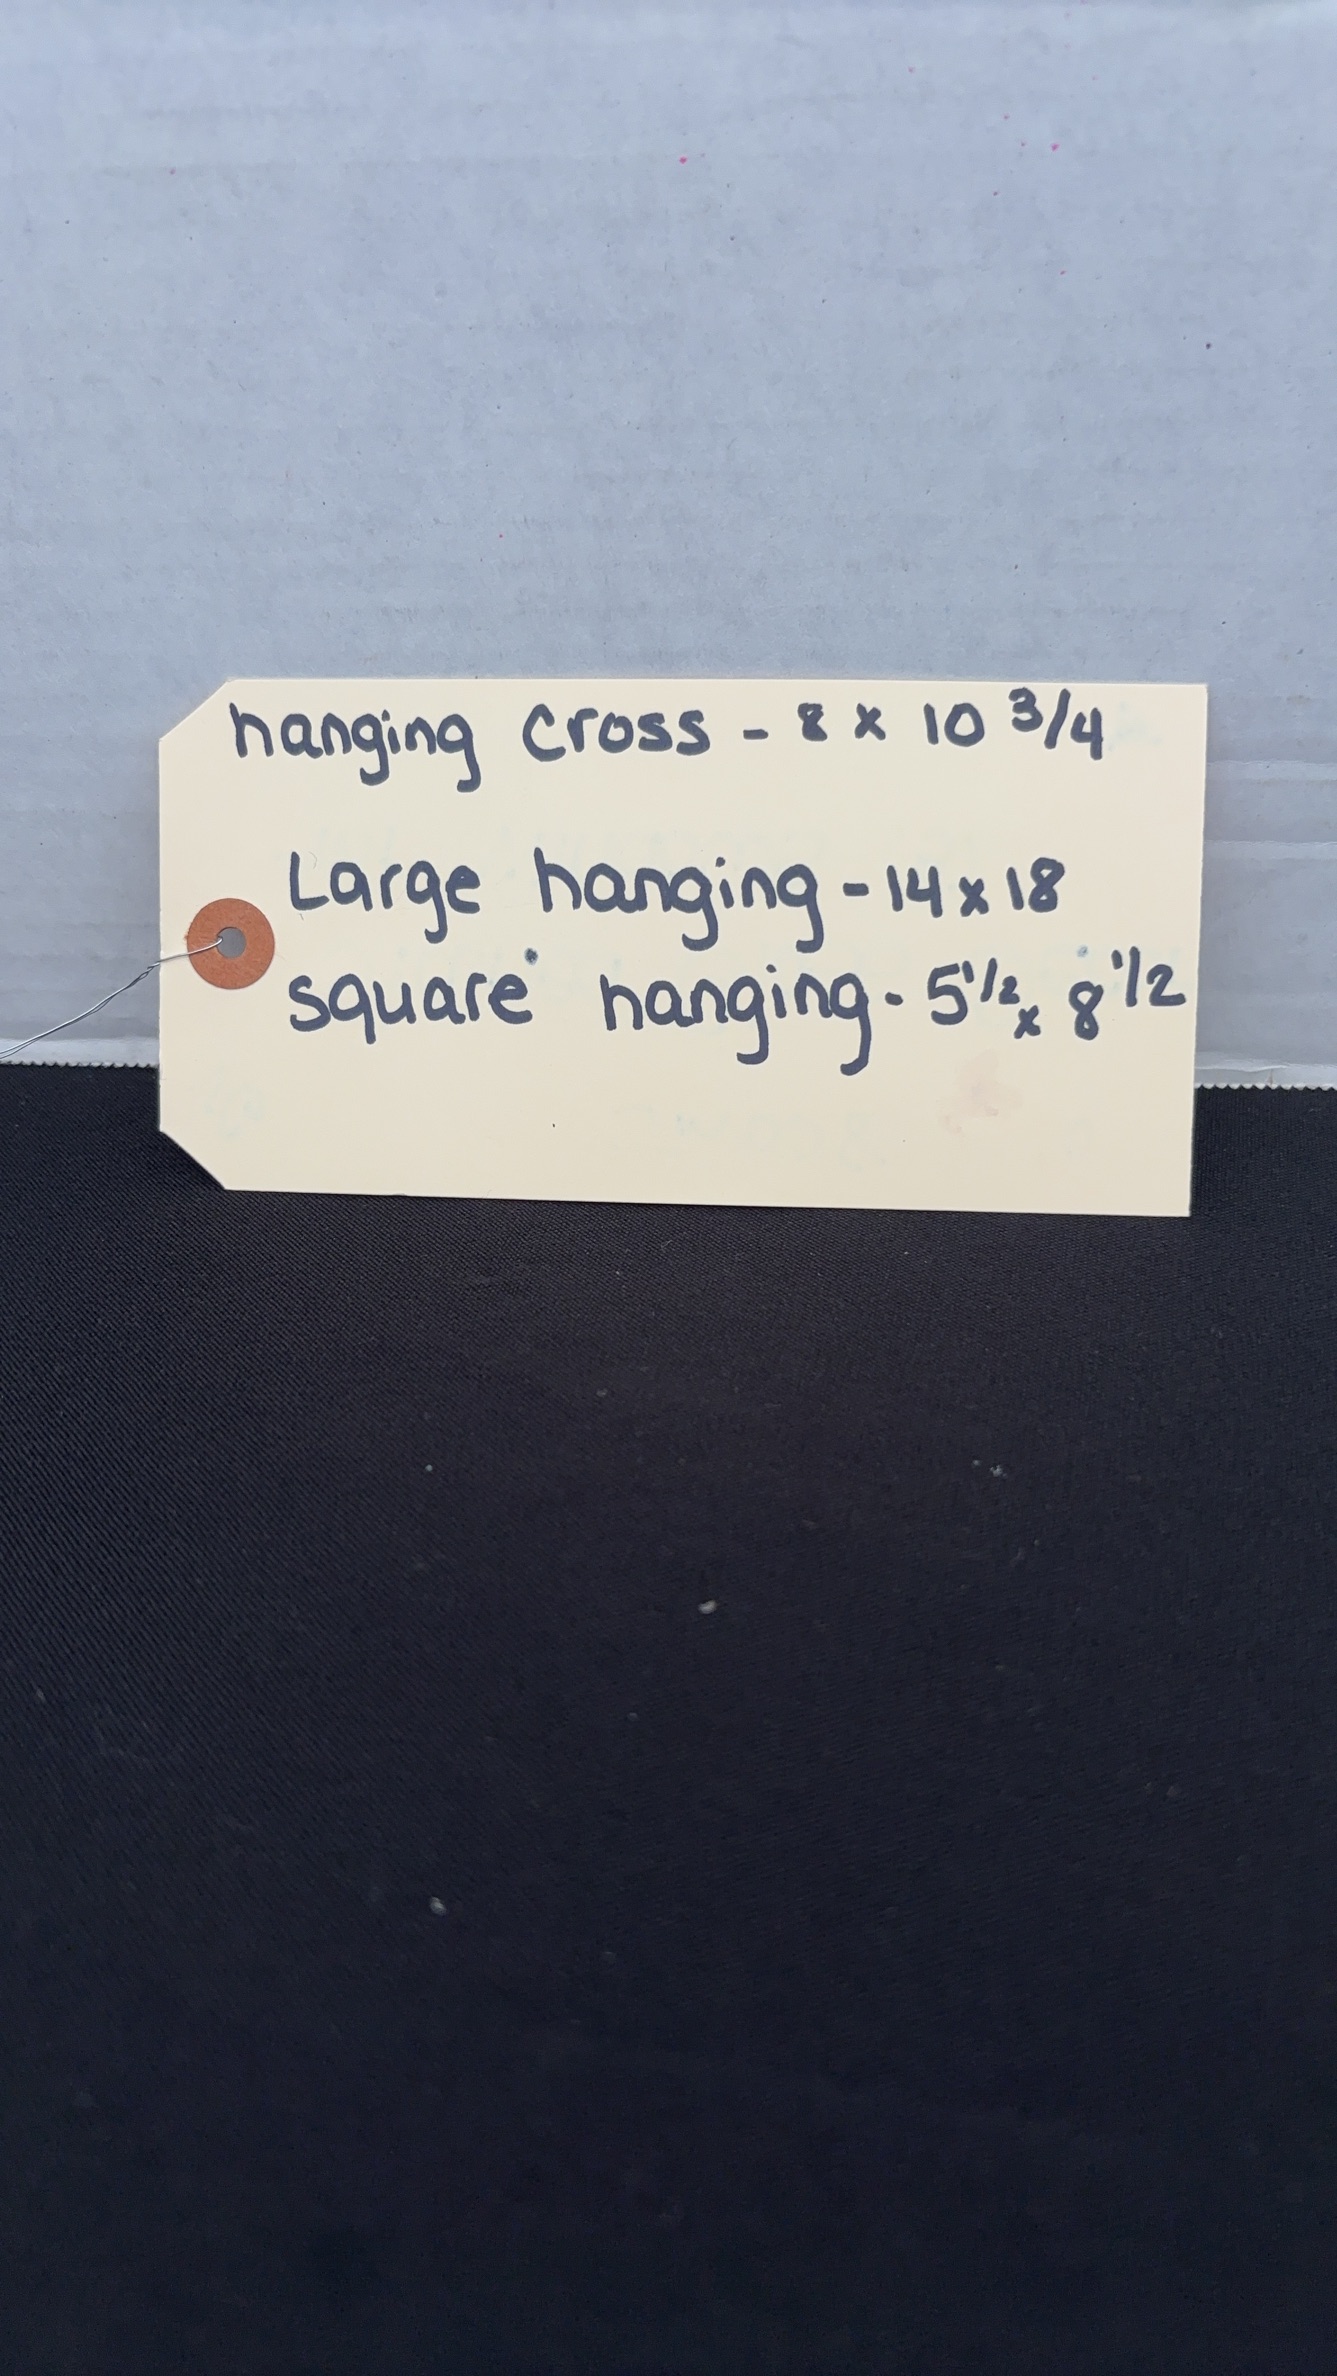 hanging cross - 8 x 10 3/4
Large hanging - 14 x 18
square hanging - 5 1/2 x 8 1/2